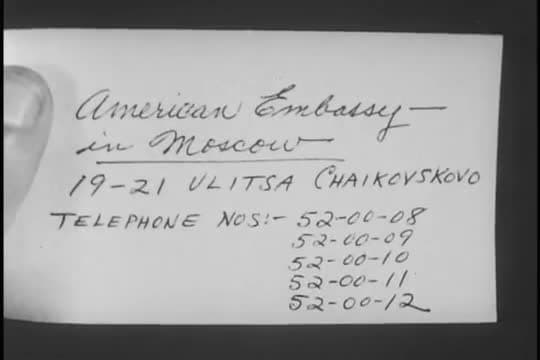 American Embassy —
in Moscow
19-21 ULITSA CHAIKOVSKOVO
TELEPHONE NOS:- 52-00-08
52-00-09
52-00-10
52-00-11
52-00-12